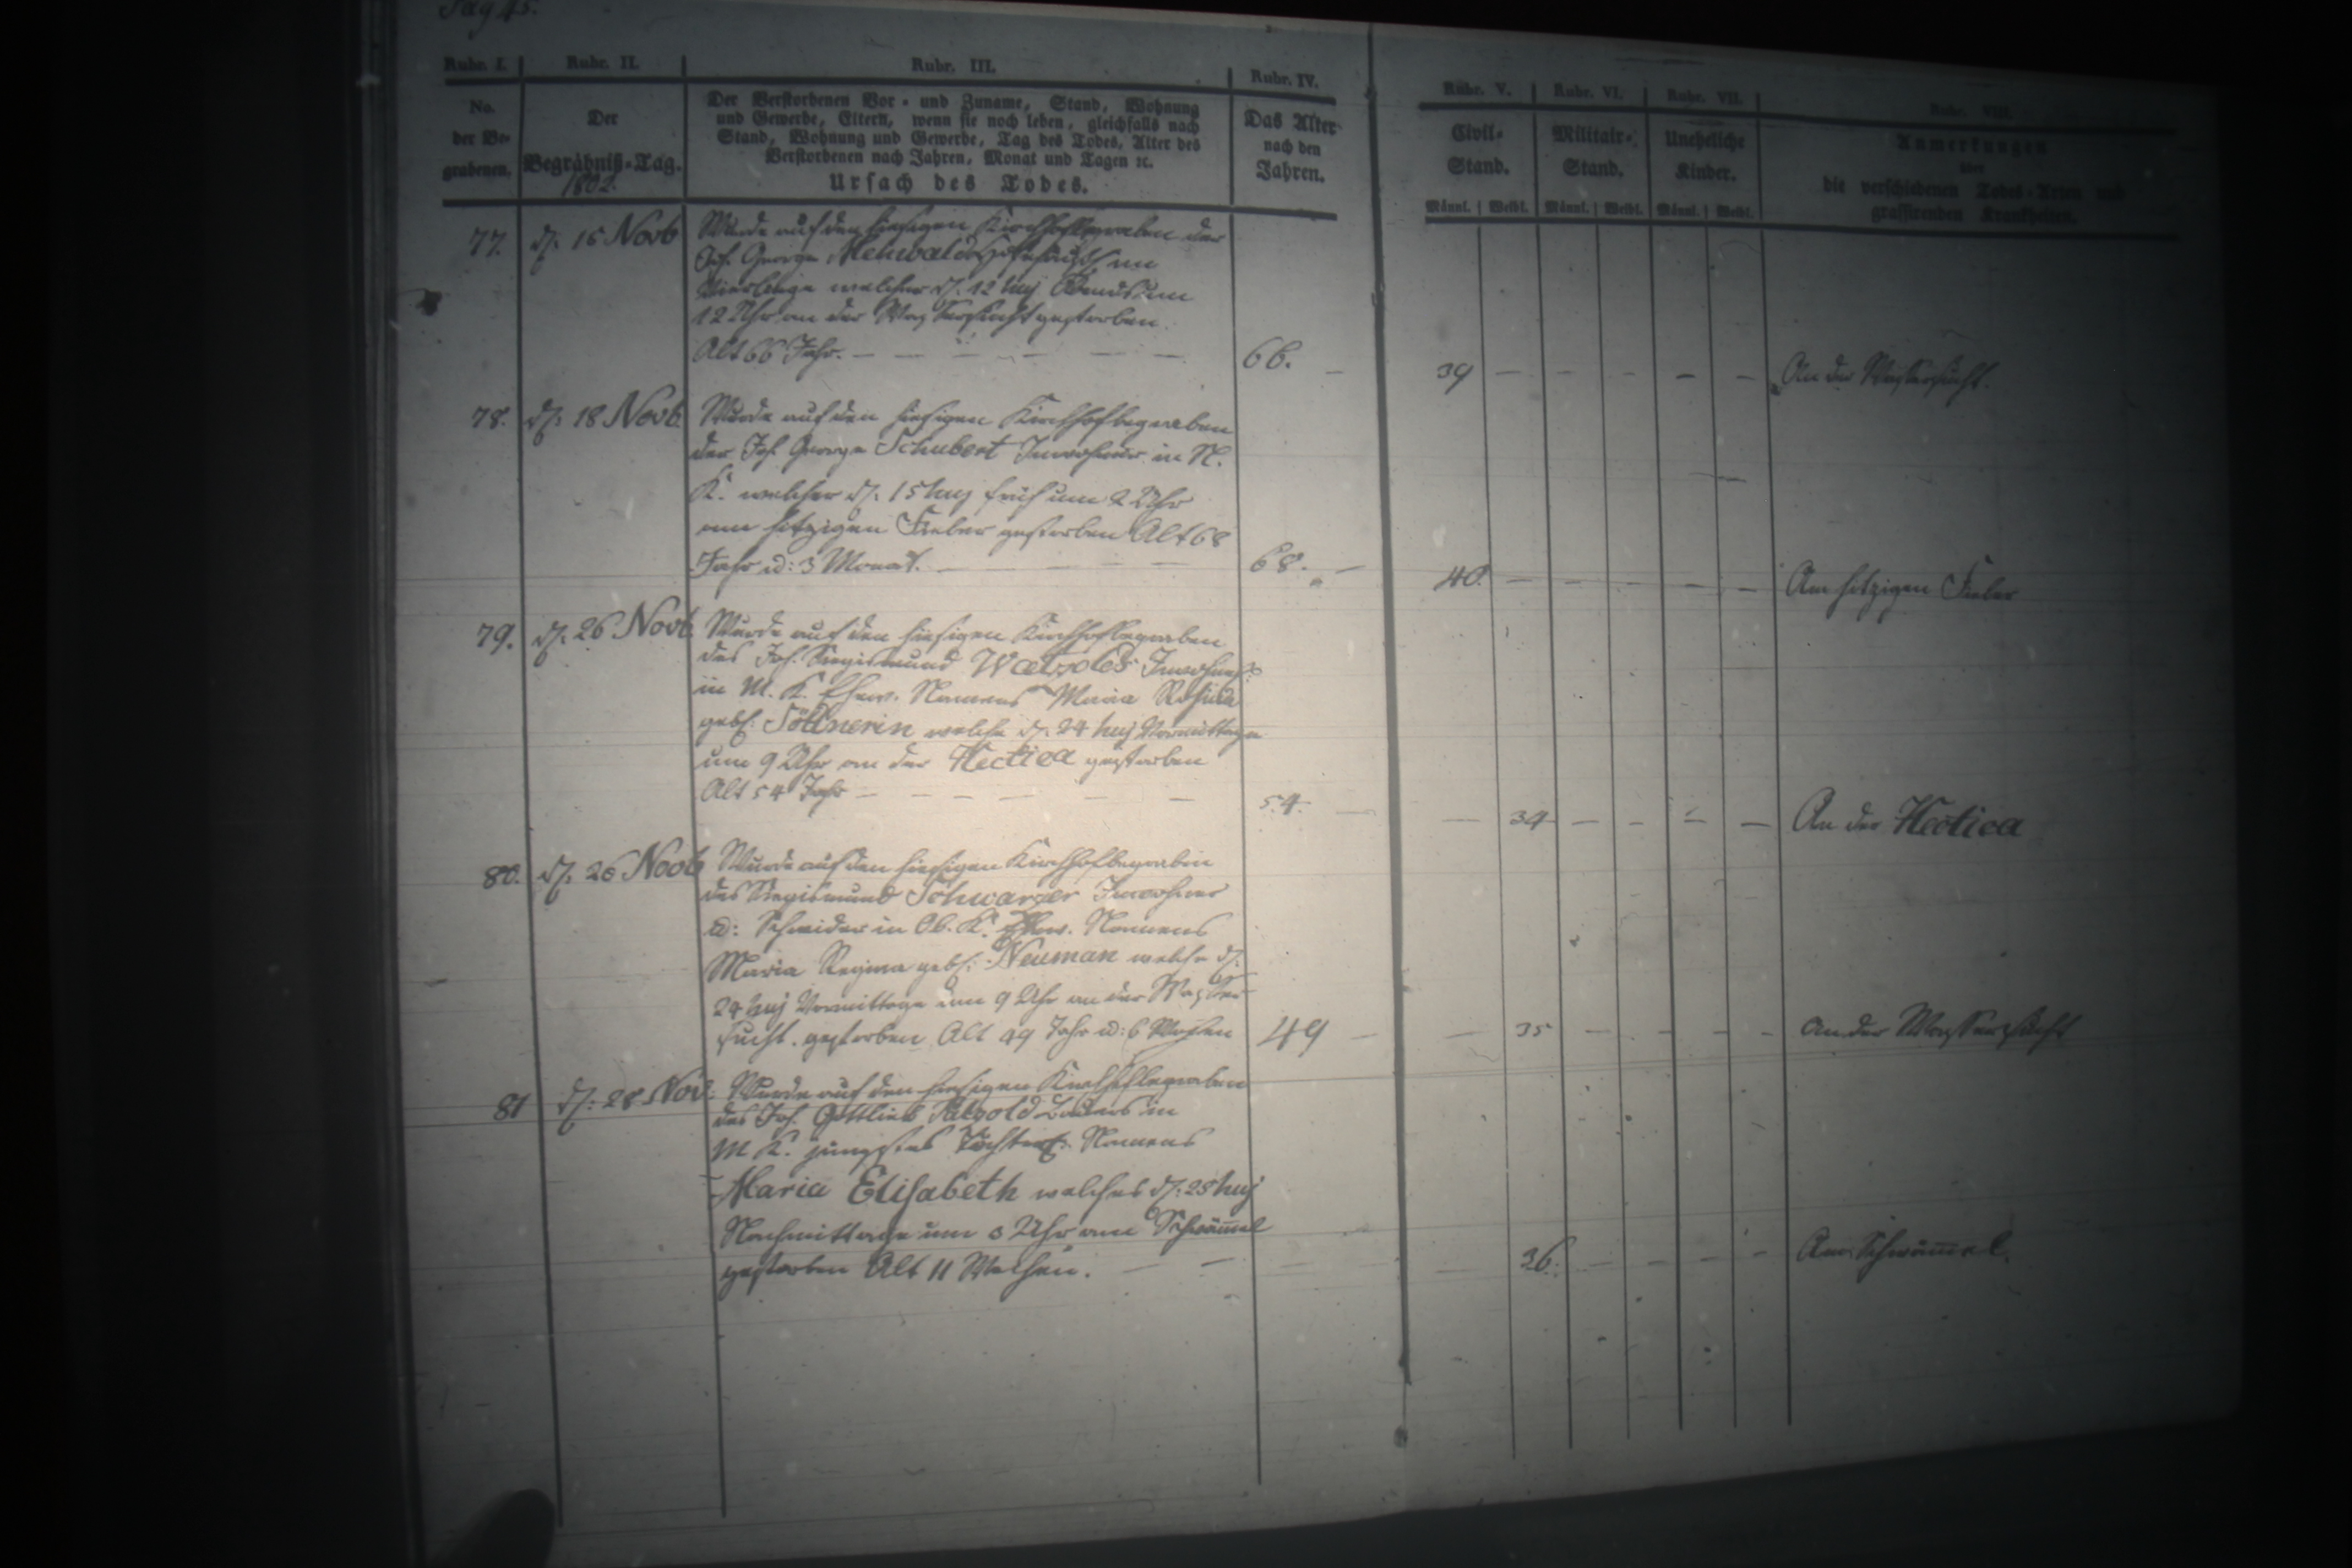 Pag 45.
Rubr. I. Rubr. II. Rubr. III. Rubr. IV. Rubr. V. Rubr. VI. Rubr. VII. Rubr. VIII.
No.
der Be-
grabenen.
Der
Begräbniß-Tag.
1802.
Der Verstorbenen Vor- und Zuname, Stand, Wohnung
und Gewerbe, Eltern, wenn sie noch leben, gleichfalls nach
Stand, Wohnung und Gewerbe, Tag des Todes, Alter des
Verstorbenen nach Jahren, Monat und Tagen ꝛc.
Ursach des Todes.
Das Alter
nach den
Jahren.
Civil-
Stand.
Männl. Weibl.
Militair-
Stand.
Männl. Weibl.
Uneheliche
Kinder.
Männl. Weibl.
Anmerkungen
über
die verschiedenen Todes-Arten und
grassirenden Krankheiten.
77. d. 15 Novb
Wurde auf den hiesigen Kirchhof begraben der
Joh. George Mehwald
welcher d. 12 huj Abends um
12 Uhr an der Wassersucht gestorben.
Alt 66 Jahr. 66. 39 An der Wassersucht.
78. d. 18 Novb.
Wurde auf den hiesigen Kirchhof begraben
der Joh George Schubert Inwohner in N.
K. welcher d. 15 huj früh um 2 Uhr
am hitzigen Fieber gestorben Alt 68
Jahr u: 3 Monat. 68. 40. Am hitzigen Fieber
79. d. 26 Novb.
Wurde auf den hiesigen Kirchhof begraben
des Joh. Siegismund Inwohners
in M. K. Ehew. Namens Maria Rosina
geb. Söllnerin welche d. 24 huj Vormittage
um 9 Uhr an der Hectica gestorben
Alt 54 Jahr 54. 34 An der Hectica
80. d. 26 Novb
Wurde auf den hiesigen Kirchhof begraben
des Siegismund Schwarzer Inwohner
u: Schneider in Ob. K. Ehew. Namens
Maria Regina geb. Neuman welche d.
24 huj Vormittage um 9 Uhr an der Wasser
sucht gestorben Alt 49 Jahr u: 6 Wochen 49 35 an der Wassersucht
81 d. 28 Nov:
Wurde auf den hiesigen Kirchhof begraben
des Joh. Gottlieb in
M K. jüngstes Töchterl. Namens
Maria Elisabeth welches d. 25 huj
Nachmittage um 3 Uhr am Schwämmel
gestorben Alt 11 Wochen. 36. Am Schwämmel.